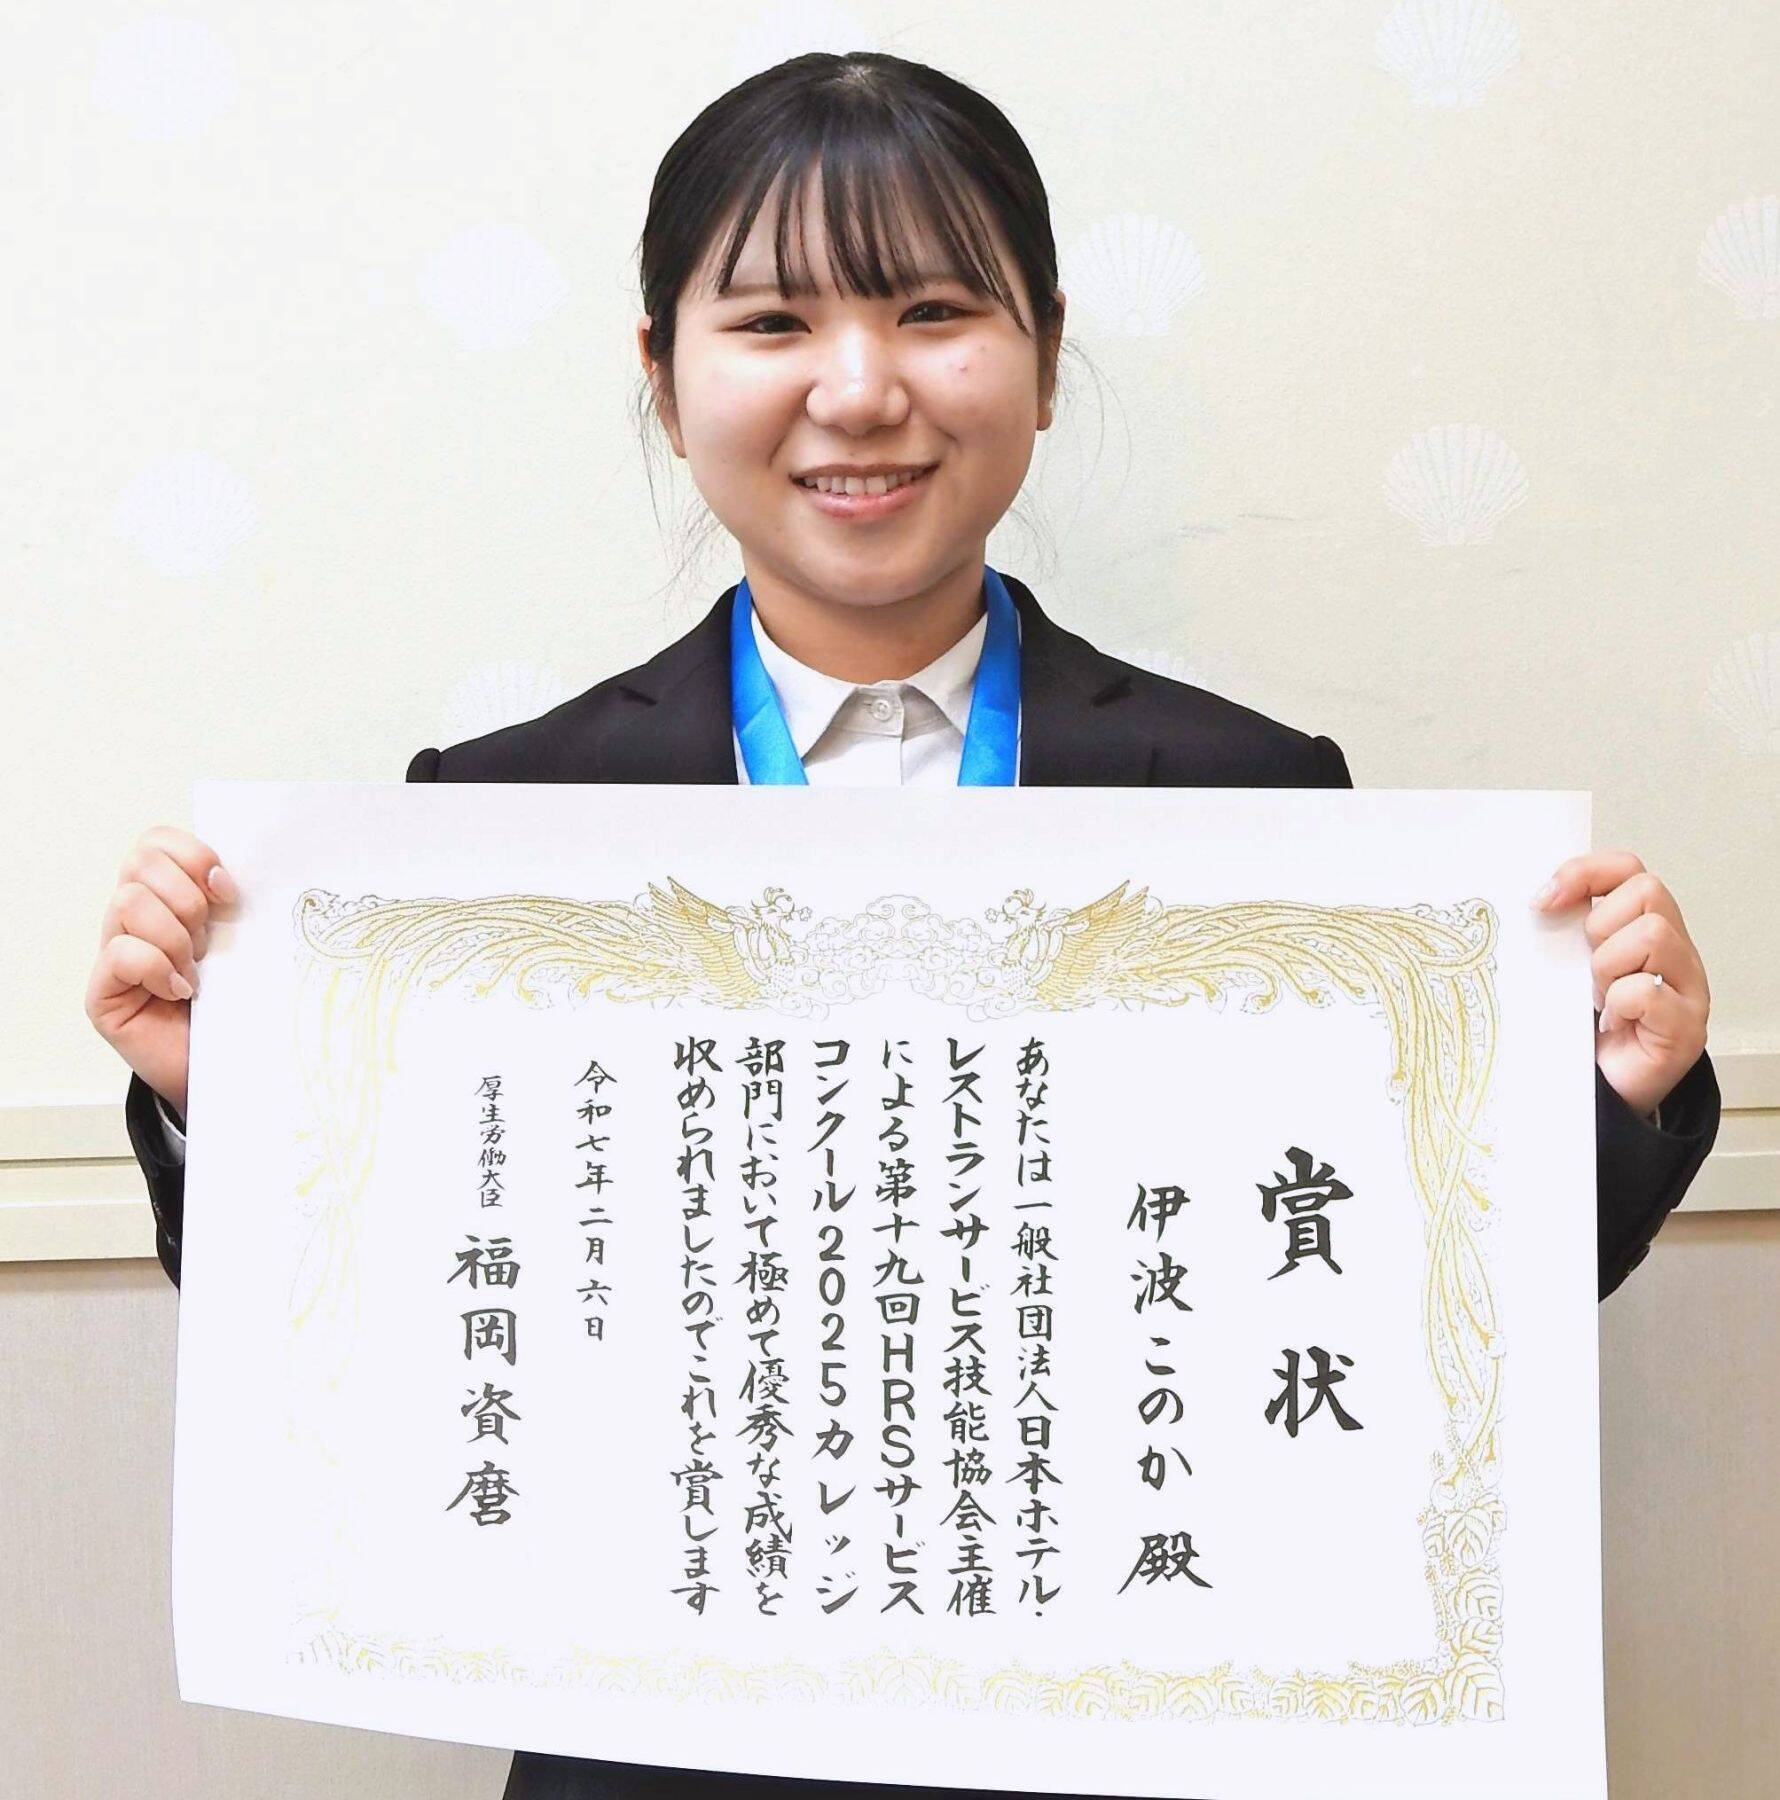 賞状
伊波このか 殿
あなたは一般社団法人日本ホテル・
レストランサービス技能協会主催
による第十九回HRSサービス
コンクール2025カレッジ
部門において極めて優秀な成績を
収められましたのでこれを賞します
令和七年二月六日
厚生労働大臣 福岡資麿